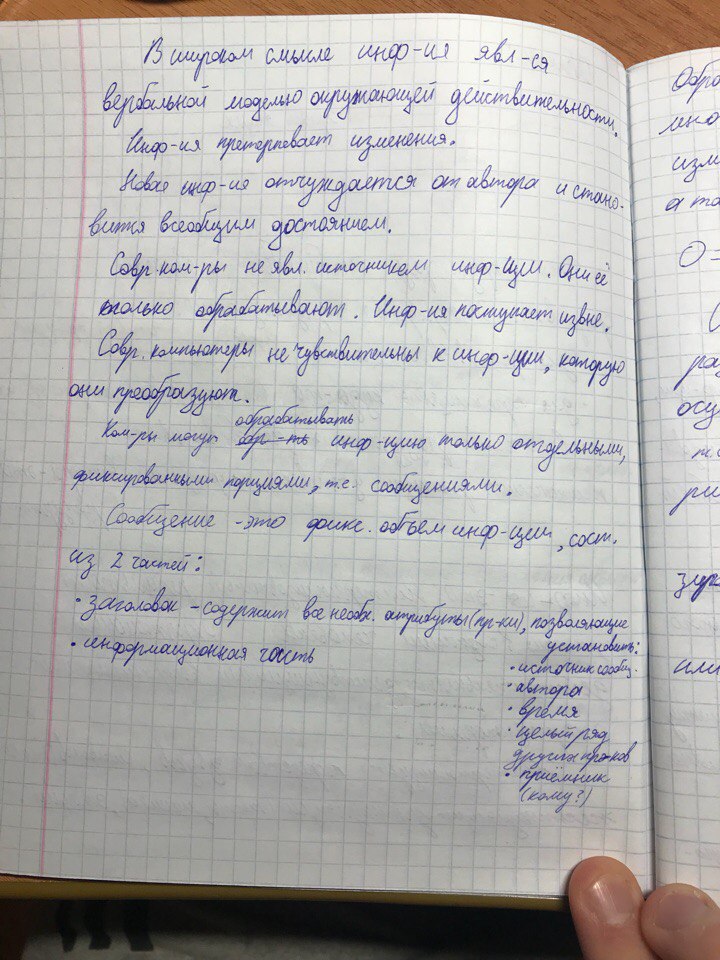 В широком смысле инф-ия явл-ся
вербальной моделью окружающей действительности.
Инф-ия претерпевает изменения.
Новая инф-ия отчуждается от автора и стано-
вится всеобщим достоянием.
Совр. ком-ры не явл. источником инф-ции. Они её
только обрабатывают. Инф-ия поступает извне.
Совр. компьютеры не чувствительны к инф-ции, которую
они преобразуют.
обрабатывать
Ком-ры могут обр-ть инф-цию только отдельными,
фиксированными порциями, т.е. сообщениями.
Сообщение - это фикс. объем инф-ции, сост.
из 2 частей:
• заголовок - содержит все необх. атрибуты (пр-ки), позволяющие
установить:
• информационная часть
• источник сообщ.
• автора
• время
• целый ряд
других пр-ков
• приёмник
(кому?)
Обра
изм
а та
О =
ра
осу
т.с
ри
или